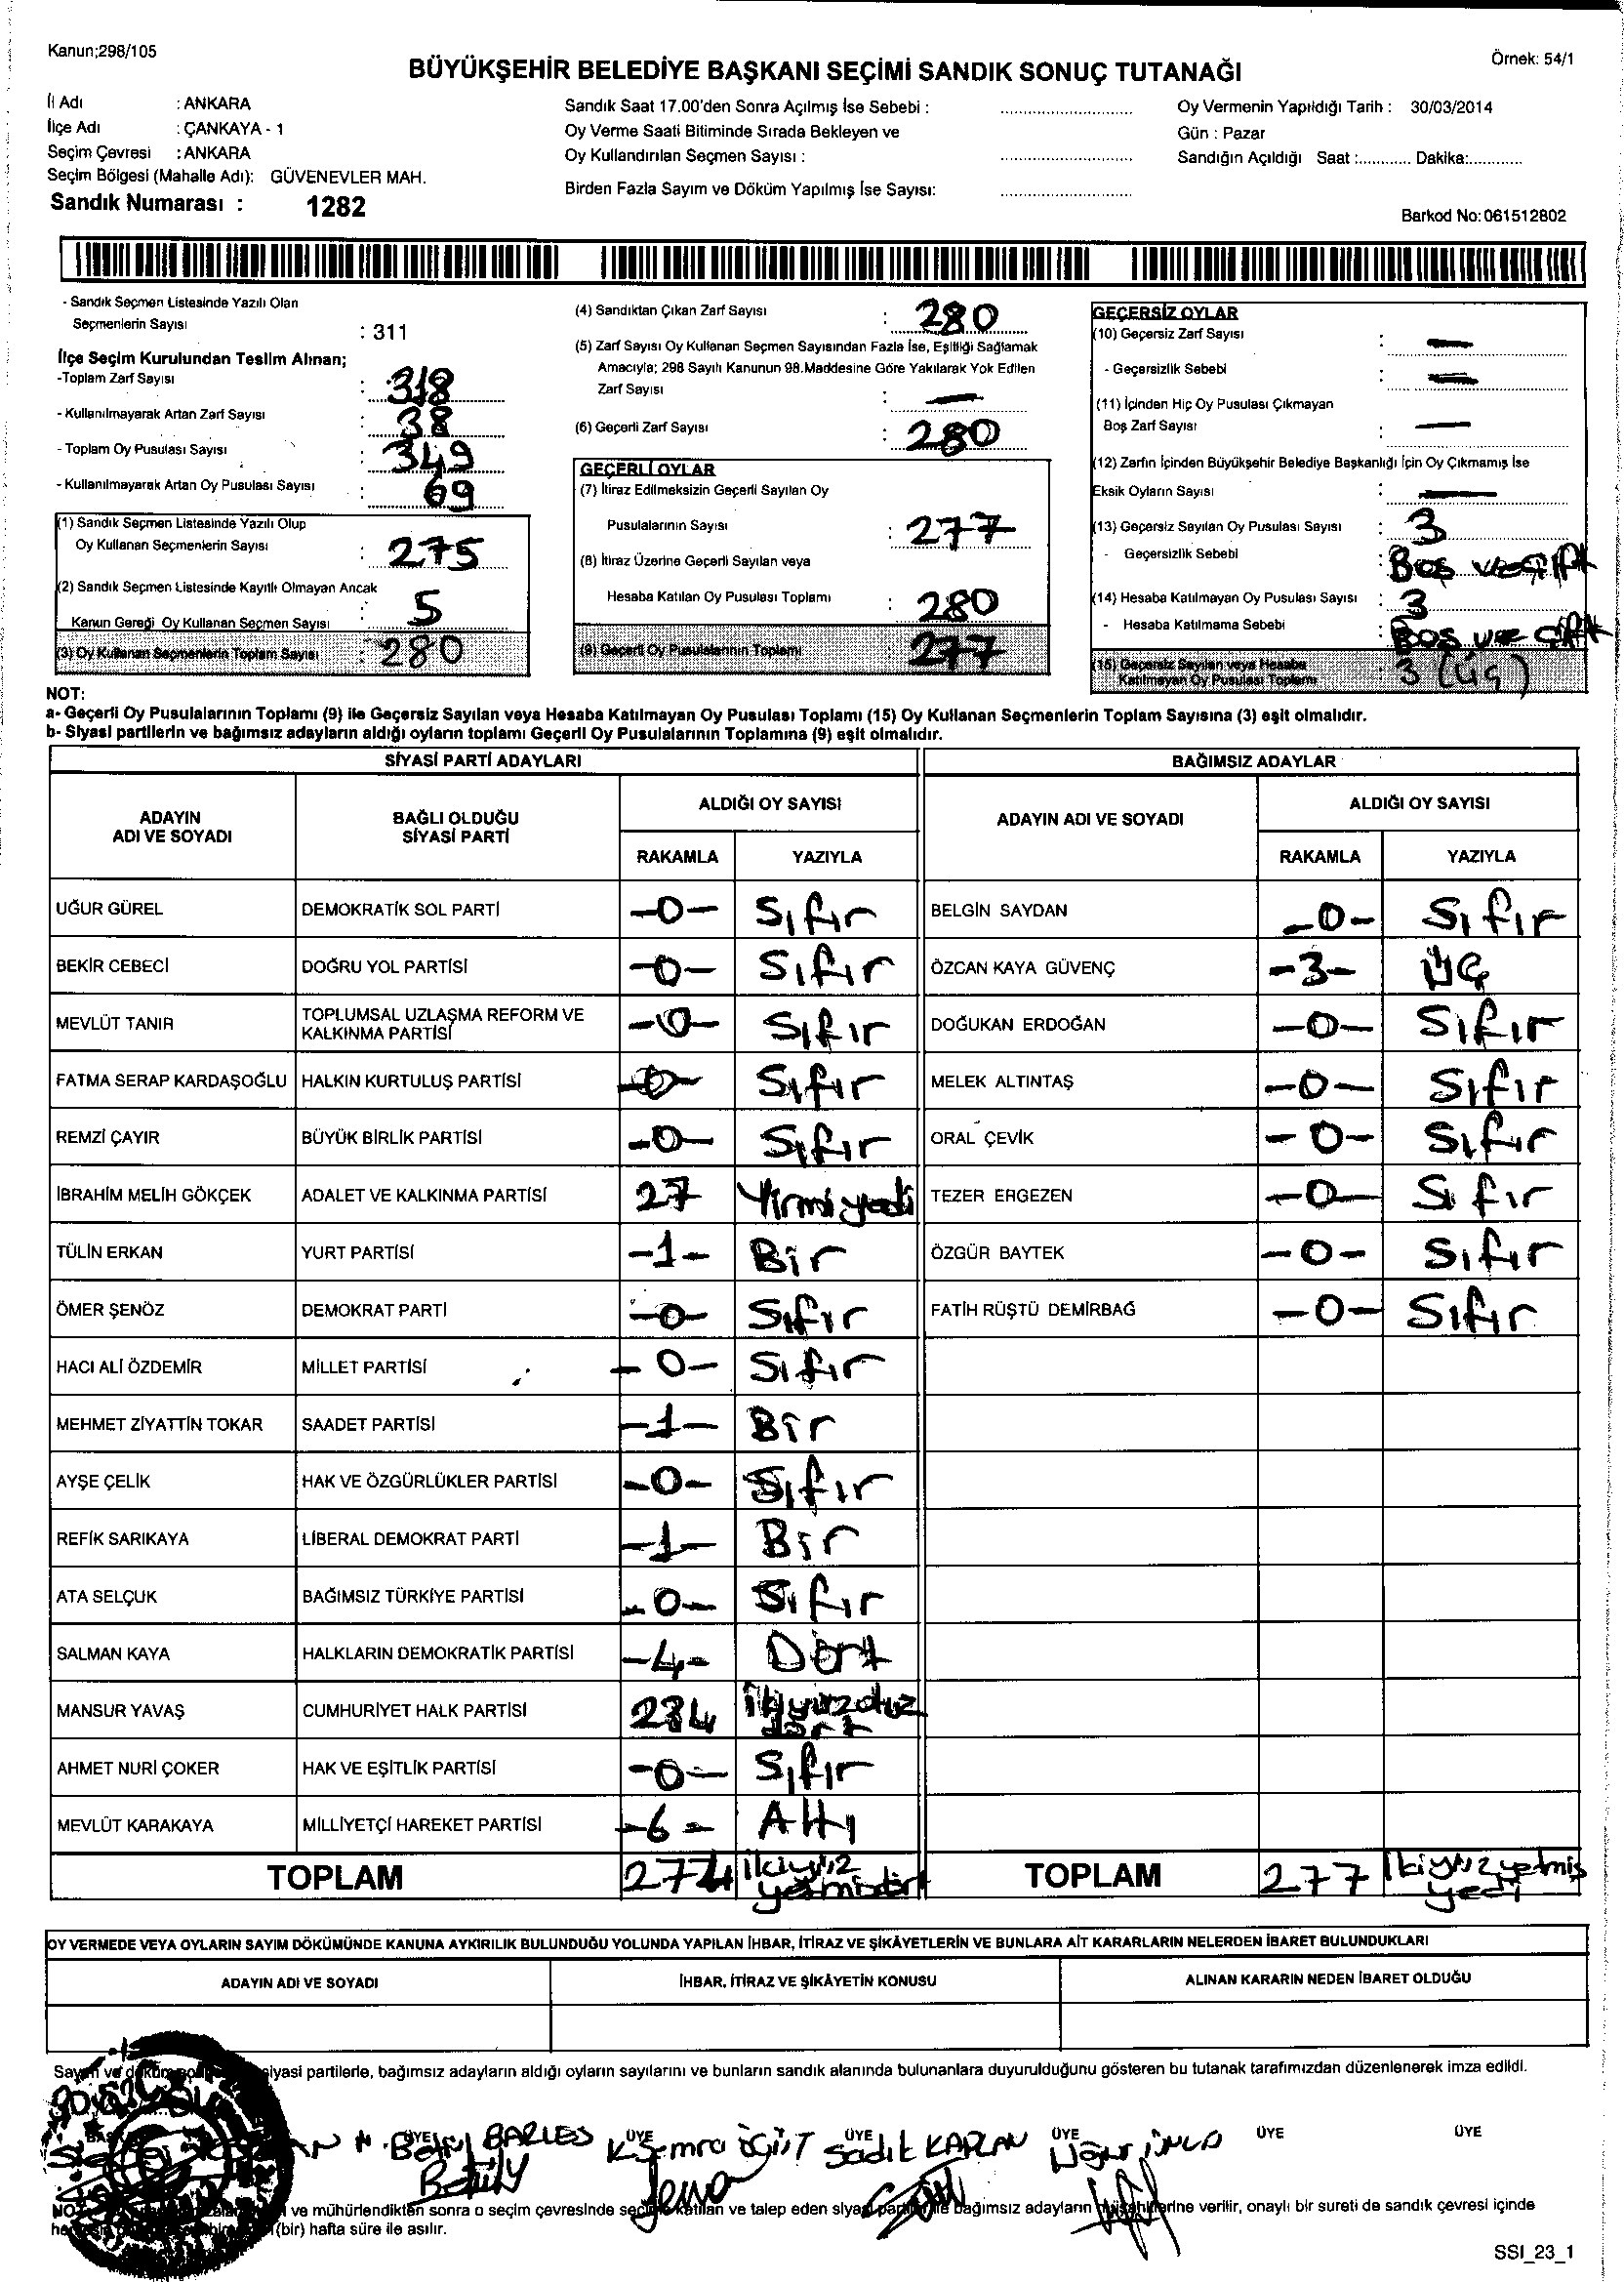 Kanun;298/105
Örnek: 54/1
BÜYÜKŞEHİR BELEDİYE BAŞKANI SEÇİMİ SANDIK SONUÇ TUTANAĞI
İl Adı : ANKARA
İlçe Adı : ÇANKAYA - 1
Seçim Çevresi : ANKARA
Seçim Bölgesi (Mahalle Adı): GÜVENEVLER MAH.
Sandık Numarası : 1282
Sandık Saat 17.00'den Sonra Açılmış İse Sebebi : ..............................
Oy Verme Saati Bitiminde Sırada Bekleyen ve
Oy Kullandırılan Seçmen Sayısı : ..............................
Birden Fazla Sayım ve Döküm Yapılmış İse Sayısı: ..............................
Oy Vermenin Yapıldığı Tarih : 30/03/2014
Gün : Pazar
Sandığın Açıldığı Saat :............ Dakika:............
Barkod No: 061512802
- Sandık Seçmen Listesinde Yazılı Olan
Seçmenlerin Sayısı : 311
İlçe Seçim Kurulundan Teslim Alınan;
-Toplam Zarf Sayısı : 318
- Kullanılmayarak Artan Zarf Sayısı : 38
- Toplam Oy Pusulası Sayısı : 349
- Kullanılmayarak Artan Oy Pusulası Sayısı : 69
(1) Sandık Seçmen Listesinde Yazılı Olup
Oy Kullanan Seçmenlerin Sayısı : 275
(2) Sandık Seçmen Listesinde Kayıtlı Olmayan Ancak
Kanun Gereği Oy Kullanan Seçmen Sayısı : 5
(3) Oy Kullanan Seçmenlerin Toplam Sayısı : 280
(4) Sandıktan Çıkan Zarf Sayısı : 280
(5) Zarf Sayısı Oy Kullanan Seçmen Sayısından Fazla İse, Eşitliği Sağlamak
Amacıyla; 298 Sayılı Kanunun 98.Maddesine Göre Yakılarak Yok Edilen
Zarf Sayısı : —
(6) Geçerli Zarf Sayısı : 280
GEÇERLİ OYLAR
(7) İtiraz Edilmeksizin Geçerli Sayılan Oy
Pusulalarının Sayısı : 277
(8) İtiraz Üzerine Geçerli Sayılan veya
Hesaba Katılan Oy Pusulası Toplamı : 280
(9) Geçerli Oy Pusulalarının Toplamı 277
GEÇERSİZ OYLAR
(10) Geçersiz Zarf Sayısı : —
- Geçersizlik Sebebi : —
(11) İçinden Hiç Oy Pusulası Çıkmayan
Boş Zarf Sayısı : —
(12) Zarfın İçinden Büyükşehir Belediye Başkanlığı İçin Oy Çıkmamış İse
Eksik Oyların Sayısı : —
(13) Geçersiz Sayılan Oy Pusulası Sayısı : 3
- Geçersizlik Sebebi : Boş ve çift
(14) Hesaba Katılmayan Oy Pusulası Sayısı : 3
- Hesaba Katılmama Sebebi : Boş ve çift
(15) Geçersiz Sayılan veya Hesaba
Katılmayan Oy Pusulası Toplamı : 3 (üç)
NOT:
a- Geçerli Oy Pusulalarının Toplamı (9) ile Geçersiz Sayılan veya Hesaba Katılmayan Oy Pusulası Toplamı (15) Oy Kullanan Seçmenlerin Toplam Sayısına (3) eşit olmalıdır.
b- Siyasi partilerin ve bağımsız adayların aldığı oyların toplamı Geçerli Oy Pusulalarının Toplamına (9) eşit olmalıdır.
SİYASİ PARTİ ADAYLARI BAĞIMSIZ ADAYLAR
ADAYIN ADI VE SOYADI BAĞLI OLDUĞU SİYASİ PARTİ ALDIĞI OY SAYISI ADAYIN ADI VE SOYADI ALDIĞI OY SAYISI
RAKAMLA YAZIYLA RAKAMLA YAZIYLA
UĞUR GÜREL DEMOKRATİK SOL PARTİ -0- Sıfır BELGİN SAYDAN -0- Sıfır
BEKİR CEBECİ DOĞRU YOL PARTİSİ -0- Sıfır ÖZCAN KAYA GÜVENÇ -3- ÜÇ
MEVLÜT TANIR TOPLUMSAL UZLAŞMA REFORM VE KALKINMA PARTİSİ -0- Sıfır DOĞUKAN ERDOĞAN -0- Sıfır
FATMA SERAP KARDAŞOĞLU HALKIN KURTULUŞ PARTİSİ -0- Sıfır MELEK ALTINTAŞ -0- Sıfır
REMZİ ÇAYIR BÜYÜK BİRLİK PARTİSİ -0- Sıfır ORAL ÇEVİK -0- Sıfır
İBRAHİM MELİH GÖKÇEK ADALET VE KALKINMA PARTİSİ 27 Yirmiyedi TEZER ERGEZEN -0- Sıfır
TÜLİN ERKAN YURT PARTİSİ -1- Bir ÖZGÜR BAYTEK -0- Sıfır
ÖMER ŞENÖZ DEMOKRAT PARTİ -0- Sıfır FATİH RÜŞTÜ DEMİRBAĞ -0- Sıfır
HACI ALİ ÖZDEMİR MİLLET PARTİSİ -0- Sıfır
MEHMET ZİYATTİN TOKAR SAADET PARTİSİ -1- Bir
AYŞE ÇELİK HAK VE ÖZGÜRLÜKLER PARTİSİ -0- Sıfır
REFİK SARIKAYA LİBERAL DEMOKRAT PARTİ -1- Bir
ATA SELÇUK BAĞIMSIZ TÜRKİYE PARTİSİ -0- Sıfır
SALMAN KAYA HALKLARIN DEMOKRATİK PARTİSİ -4- Dört
MANSUR YAVAŞ CUMHURİYET HALK PARTİSİ 234 ikiyüzotuz dört
AHMET NURİ ÇOKER HAK VE EŞİTLİK PARTİSİ -0- Sıfır
MEVLÜT KARAKAYA MİLLİYETÇİ HAREKET PARTİSİ -6- Altı
TOPLAM 274 ikiyüz yetmişdört TOPLAM 277 ikiyüzyetmiş yedi
OY VERMEDE VEYA OYLARIN SAYIM DÖKÜMÜNDE KANUNA AYKIRILIK BULUNDUĞU YOLUNDA YAPILAN İHBAR, İTİRAZ VE ŞİKÂYETLERİN VE BUNLARA AİT KARARLARIN NELERDEN İBARET BULUNDUKLARI
ADAYIN ADI VE SOYADI İHBAR, İTİRAZ VE ŞİKÂYETİN KONUSU ALINAN KARARIN NEDEN İBARET OLDUĞU
Sayım ve döküm siyasi partilerle, bağımsız adayların aldığı oyların sayılarını ve bunların sandık alanında bulunanlara duyurulduğunu gösteren bu tutanak tarafımızdan düzenlenerek imza edildi.
ÜYE ÜYE ÜYE ÜYE ÜYE ÜYE
BARLES Semra ÖĞÜT Sadık KAPLAN
ve mühürlendikten sonra o seçim çevresinde seçime katılan ve talep eden siyasi partiler ile bağımsız adayların müşahitlerine verilir, onaylı bir sureti de sandık çevresi içinde
(bir) hafta süre ile asılır.
SSI_23_1